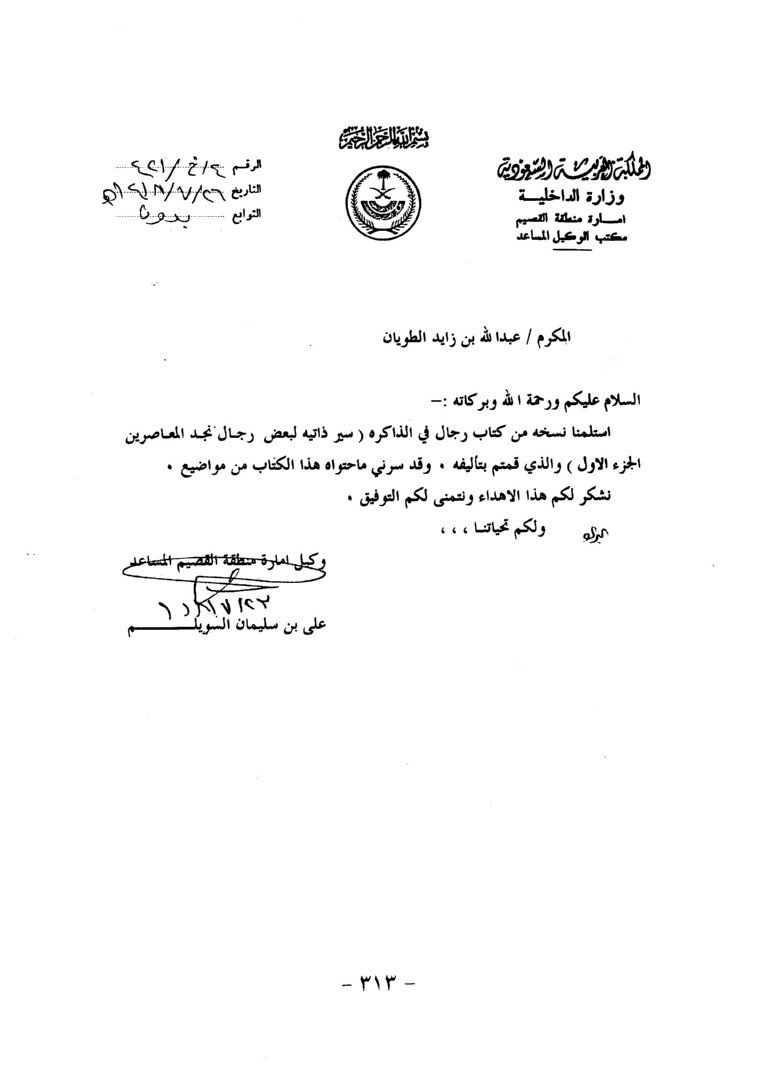 بسم الله الرحمن الرحيم
المملكة العربية السعودية
وزارة الداخلية
امـارة منطقة القصيم
مكتب الوكيل المساعد
الرقم
التاريخ ١٤١٨/٧/٢٦هـ
التوابع بدون
المكرم / عبدالله بن زايد الطويان
السلام عليكم ورحمة الله وبركاته :–
استلمنا نسخه من كتاب رجال في الذاكره ( سير ذاتيه لبعض رجـال نجد المعاصرين
الجزء الاول ) والذي قمتم بتأليفه ٠ وقد سرني ماحتواه هذا الكتاب من مواضيع ٠
نشكر لكم هذا الاهداء ونتمنى لكم التوفيق ٠
ولكم تحياتنـا ، ، ،
وكيل امارة منطقة القصيم المساعد
على بن سليمان السويلـــــــم
- ٣١٣ -